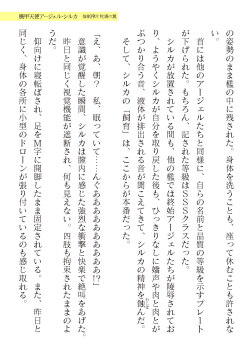 機甲天使アージェル・シルカ
の姿勢のまま檻の中に残された、身体を洗うことも、座って休むことも許されな
い。
首には他のアージェルたちと同様に、自らの名前と品質の等級を示すプレート
が下げられた。もちろん、記された等級はSSSクラスだった。
放置されているシルカの周りも、他の檻では終始アージェルたちが陵辱されてお
り、ようやくシルカが自分を取り戻した後も、ひっきりなしに嬌声や肉と肉とが
ぶつかり合う音、液体が排出される音が聞こえてきて、シルカの精神を蝕んだ。
そして、シルカの「飼育」は、そこからが本番だった。
「え、あ、朝？　私、眠っていて……んぐああああああああ!?」
意識が覚醒した瞬間、シルカは膣内に感じた強烈な衝撃と快楽で絶叫をあげた。
昨日と同じく視覚機能が遮断され、何も見えない。四肢も拘束されたままのよ
うだ。
仰向けに寝転ばされ、足をM字に開脚したまま固定されている。また、昨日と
同じく、身体の各所に小型のドローンが張り付いているのも感じ取れる。